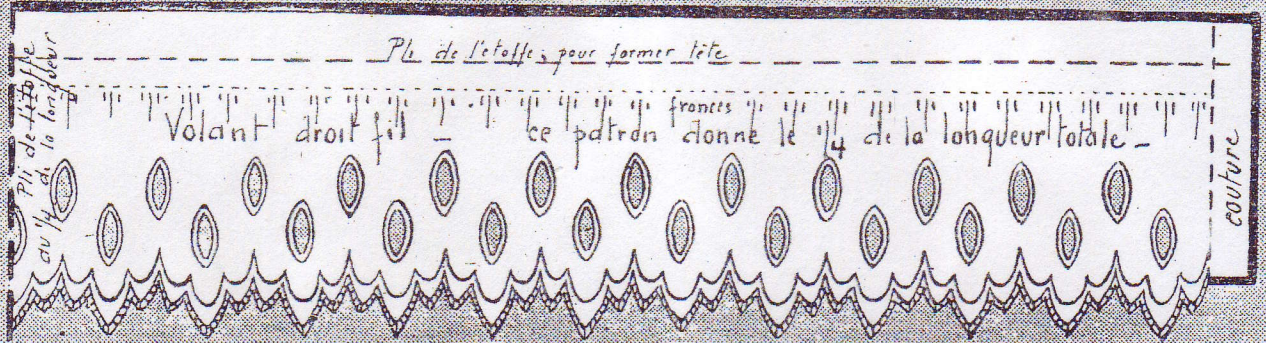 Pli de l'etoffe, pour former tête
fronces
Volant droit fil - ce patron donne le 1/4 de la longueur totale -
Pli de l'étoffe
au 1/4 de la longueur
couture